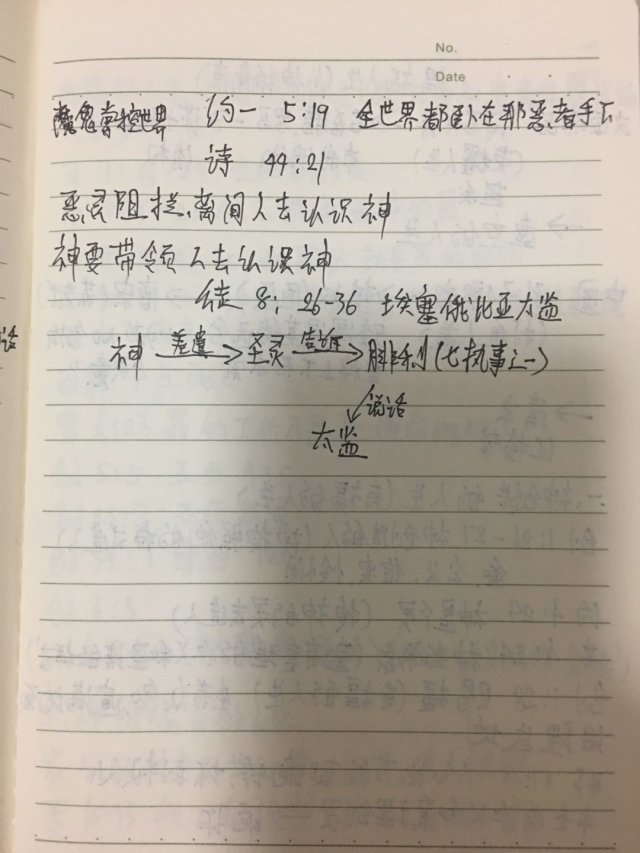 No.
Date
魔鬼掌控世界 约一 5:19 全世界都卧在那恶者手下
诗 44:21
恶灵阻拦、离间人去认识神
神要带领人去认识神
徒 8:26-36 埃塞俄比亚太监
神 差遣→ 圣灵 告诉→ 腓利(七执事之一)
↙说话
太监
话